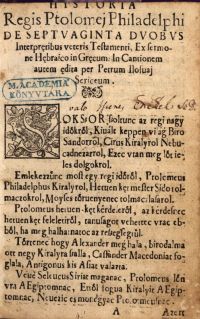 HISTORIA
Regis Ptolomej Philadelphi
DE SEPTVAGINTA DVOBVS
Interpretibus veteris Testamenti, Ex sermo-
ne Hebraico in Græcum. In Cantionem
autem edita per Petrum Ilosuaj
Sericeum.
M. ACADEMIA
KÖNYVTARA
SOKSOR szoltunc az regi nagy
időkről, Kiuált keppen vi ag Biro
Sandorról, Cirus Kiralyrol Nebu-
cadnezarrol, Ezec vtan meg löt ie-
les dolgokrol.
Emlekezzünc most egy regi időről, Ptolemeus
Philadelphus Kiralyrol, Hetuen ket mester Sido tol-
maczokrol, Moyses törtuenyenec tolmaczlasarol.
Ptolomeus hetuen ket kérdesiről, az kerdesrec
hetuen ket feleletiröl, tanusagot vehettec vrac eb-
ből, ha meg halhatnatoc az resegsegrül.
Törtenec hogy Alexander meg hala, birodalma
ott negy Kiralyra szalla, Cassander Macedoniat fog-
lala, Antigonus kis Asiat valarta.
Veue Seleucus Siriat maganac, Ptolomeus lőn
vra AEgiptomnac, Ettől fogua Kiralyit AEgip-
tomnac, Neuezic es mongyac Ptolomeusnac.
A Azert